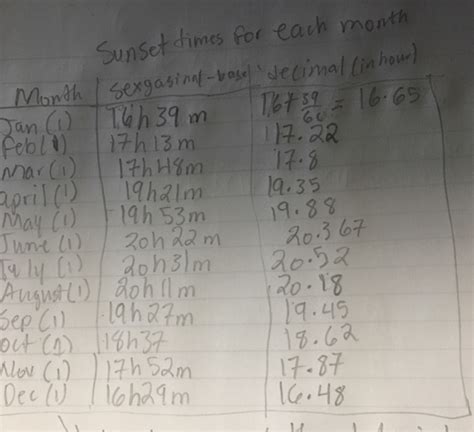 Sunset times for each month
Month sexgasimal-base decimal (in hour)
Jan (1) 16h 39m 16+39/60 = 16.65
Feb (1) 17h 13m 17.22
Mar (1) 17h48m 17.8
april (1) 19h21m 19.35
May (1) 19h 53m 19.88
June (1) 20h 22m 20.367
July (1) 20h31m 20.52
August (1) 20h11m 20.18
Sep (1) 19h27m 19.45
Oct (1) 18h37 18.62
Nov (1) 17h 52m 17.87
Dec (1) 16h29m 16.48